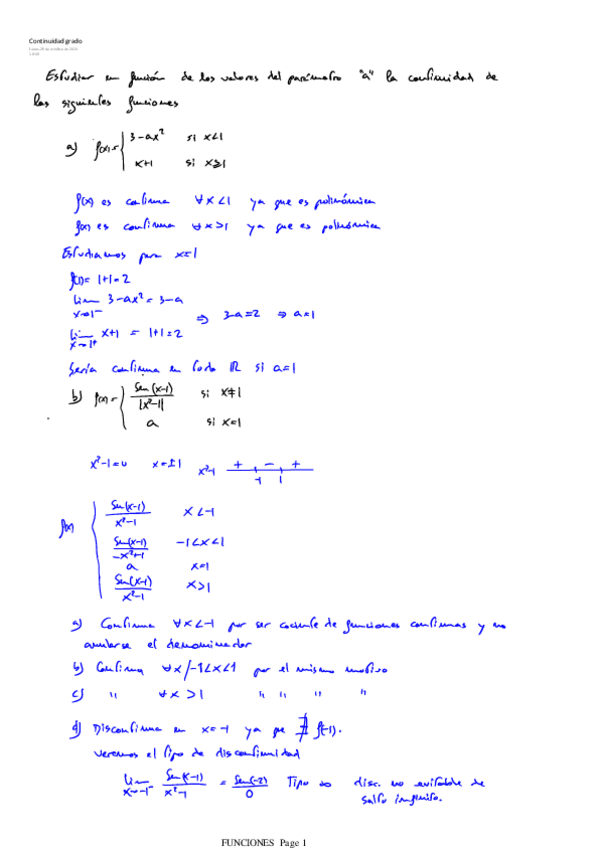 Continuidad grado
Estudiar en función de los valores del parámetro "a" la continuidad de
las siguientes funciones
a) f(x) = { 3-ax² si x<1
x+1 si x≥1
f(x) es continua ∀x<1 ya que es polinómica
f(x) es continua ∀x>1 ya que es polinómica
Estudiamos para x=1
f(1)= 1+1=2
lim x→1⁻ 3-ax² = 3-a
⇒ 3-a=2 ⇒ a=1
lim x→1⁺ x+1 = 1+1=2
Sería continua en todo ℝ si a=1
b) f(x) = { sen(x-1) / |x²-1| si x≠1
a si x=1
x²-1=0 x=±1 x²-1 + - +
-1 1
f(x) { sen(x-1) / x²-1 x<-1
sen(x-1) / -x²+1 -1<x<1
a x=1
sen(x-1) / x²-1 x>1
a) Continua ∀x<-1 por ser cociente de funciones continuas y no
anularse el denominador
b) Continua ∀x/-1<x<1 por el mismo motivo
c) " ∀x>1 " " " "
d) Discontinua en x=-1 ya que ∄ f(-1).
Veremos el tipo de discontinuidad
lim x→-1⁻ sen(x-1) / x²-1 = sen(-2) / 0 Tipo ∞ disc. no evitable de
salto infinito.
FUNCIONES Page 1